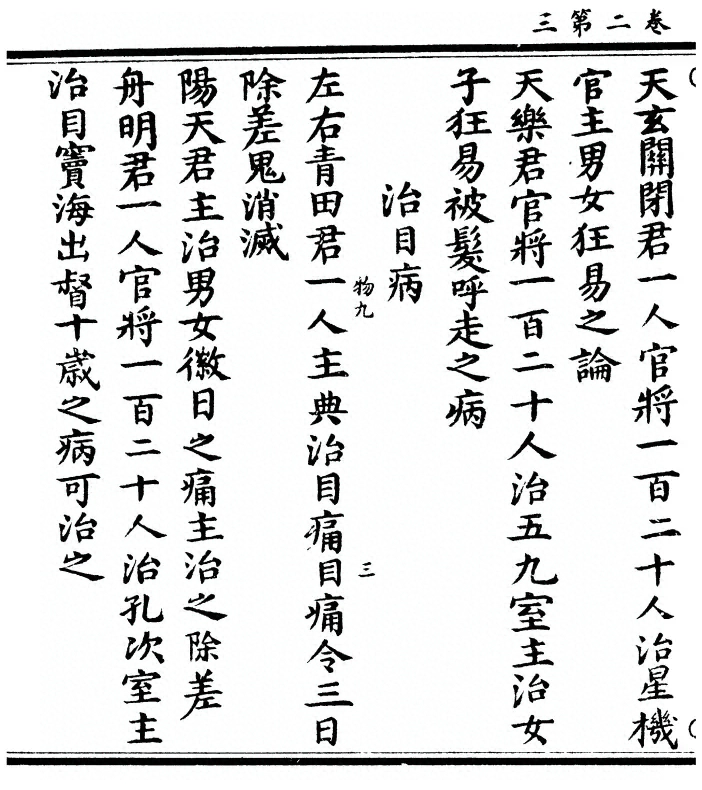 卷二第三
天玄關閉君一人官將一百二十人治星機
官主男女狂易之論
天樂君官將一百二十人治五九室主治女
子狂易被髮呼走之病
治目病
物九
三
左右青田君一人主典治目痛目痛令三日
除差鬼消滅
陽天君主治男女徽日之痛主治之除差
舟明君一人官將一百二十人治孔次室主
治目竇海出督十歲之病可治之